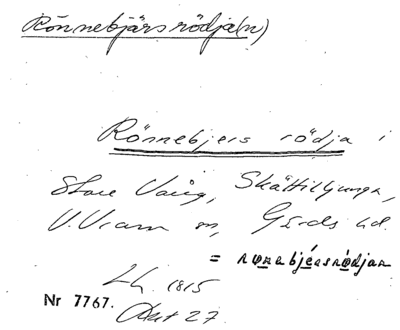 Rönnebjärsrödja(n)
Rönnebjers rödja i
Store Vång, Skättiljunga,
V. Vram sn, Gärds hd.
= rønebjéərsrǿdjan
Lh. 1815
Akt 27.
Nr 7767.